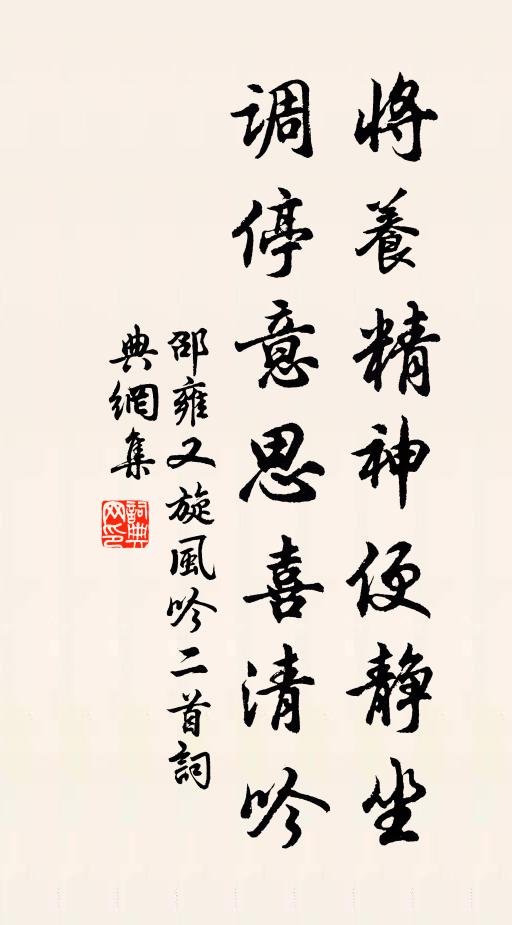 将養精神便静坐
调停意思喜清吟
邵雍又旋風吟二首詞
典網集
詞典
网印